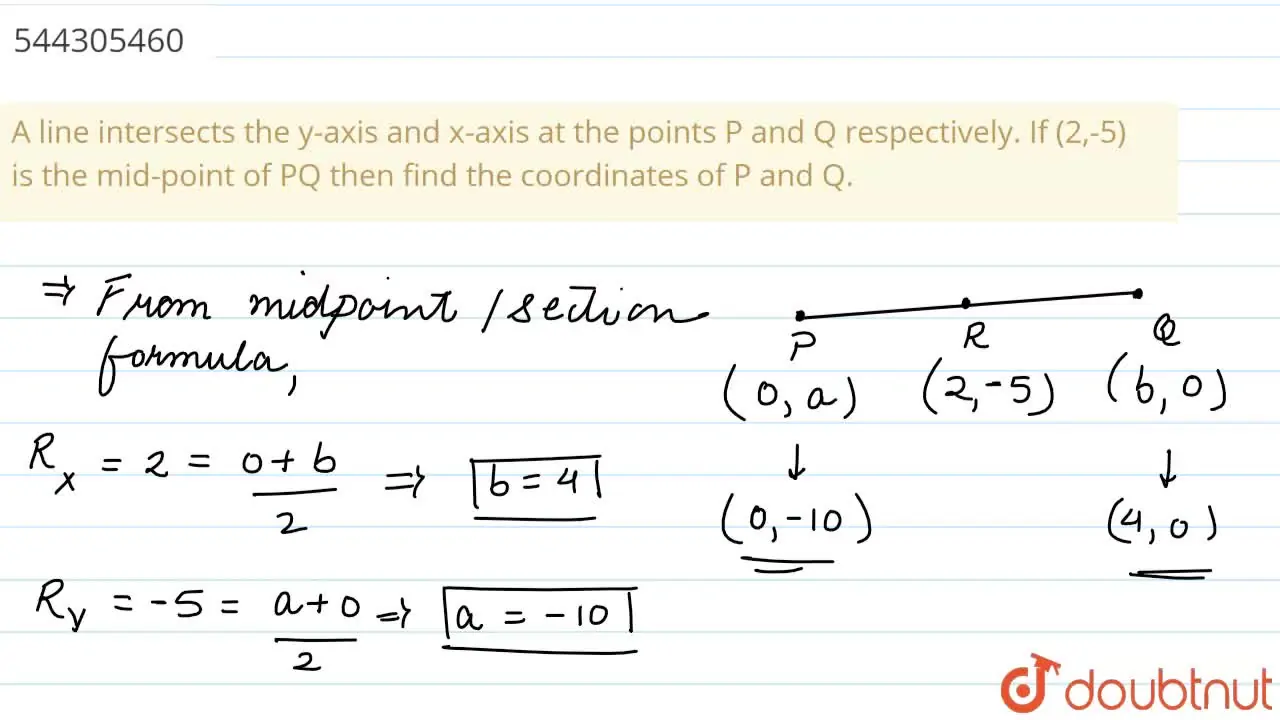 544305460
A line intersects the y-axis and x-axis at the points P and Q respectively. If (2,-5)
is the mid-point of PQ then find the coordinates of P and Q.
⇒ From midpoint / section
formula,
P R Q
(0, a) (2, -5) (b, 0)
↓ ↓
(0, -10) (4, 0)
Rx = 2 = 0 + b / 2 ⇒ b = 4
Ry = -5 = a + 0 / 2 ⇒ a = -10
doubtnut